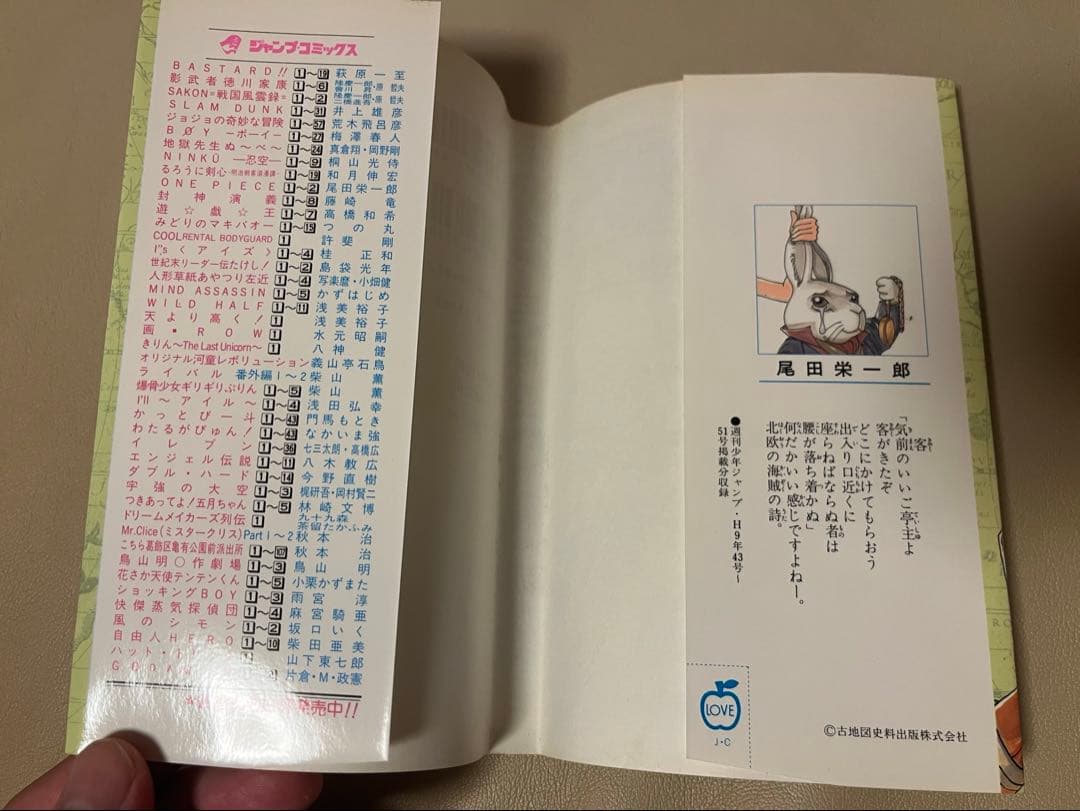 ジャンプ・コミックス
BASTARD!! 1〜19 萩原一至
影武者徳川家康 1〜6 隆慶一郎・原哲夫 會川昇
SAKON=戦国風雲録= 1〜2 隆慶一郎・原哲夫 二橋進吾
SLAM DUNK 1〜31 井上雄彦
ジョジョの奇妙な冒険 1〜57 荒木飛呂彦
BØY ―ボーイ― 1〜27 梅澤春人
地獄先生ぬ〜べ〜 1〜24 真倉翔・岡野剛
NINKŪ ―忍空― 1〜9 桐山光侍
るろうに剣心 -明治剣客浪漫譚- 1〜19 和月伸宏
ONE PIECE 1〜2 尾田栄一郎
封神演義 1〜8 藤崎竜
遊☆戯☆王 1〜7 高橋和希
みどりのマキバオー 1〜15 つの丸
COOL RENTAL BODYGUARD 1 許斐剛
I"s〈アイズ〉 1〜4 桂正和
世紀末リーダー伝たけし! 1〜2 島袋光年
人形草紙あやつり左近 1〜4 写楽麿・小畑健
MIND ASSASSIN 1〜5 かずはじめ
WILD HALF 1〜11 浅美裕子
天より高く! 1 浅美裕子
画・ROW 1 水元昭嗣
きりん〜The Last Unicorn〜 1 八神健
オリジナル河童レボリューション 義山亭石鳥
ライバル 番外編1〜2 柴山薫
爆骨少女ギリギリぷりん 1〜5 柴山薫
I'll 〜アイル〜 1〜4 浅田弘幸
かっとび一斗 1〜43 門馬もとき
わたるがぴゅん! 1〜43 なかいま強
イレブン 1〜36 七三太朗・高橋広
エンジェル伝説 1〜11 八木教広
ダブル・ハード 1〜14 今野直樹
宇強の大空 1〜3 梶研吾・岡村賢二
つきあってよ!五月ちゃん 1〜5 林崎文博
ドリームメイカーズ列伝 1 九十九森 茶留たかふみ
Mr.Clice(ミスタークリス) Part 1〜2 秋本治
こちら葛飾区亀有公園前派出所 秋本治
鳥山明○作劇場 1〜3 鳥山明
花さか天使テンテンくん 1〜5 小栗かずまた
ショッキングBOY 1〜3 雨宮淳
快傑蒸気探偵団 1〜4 麻宮騎亜
風のシモン 1〜2 坂口いく
自由人HERO 1〜10 柴田亜美
ハット・ 山下東七郎
片倉・M・政憲
発売中!!
尾田栄一郎
客
「気前のいいご亭主よ
客がきたぞ
どこにかけてもらおう
出入り口近くに
座らねばならぬ者は
腰が落ち着かぬ」
何だかいい感じですよねー。
北欧の海賊の詩。
●週刊少年ジャンプ・H9年43号〜
51号掲載分収録
LOVE
J・C
©古地図史料出版株式会社